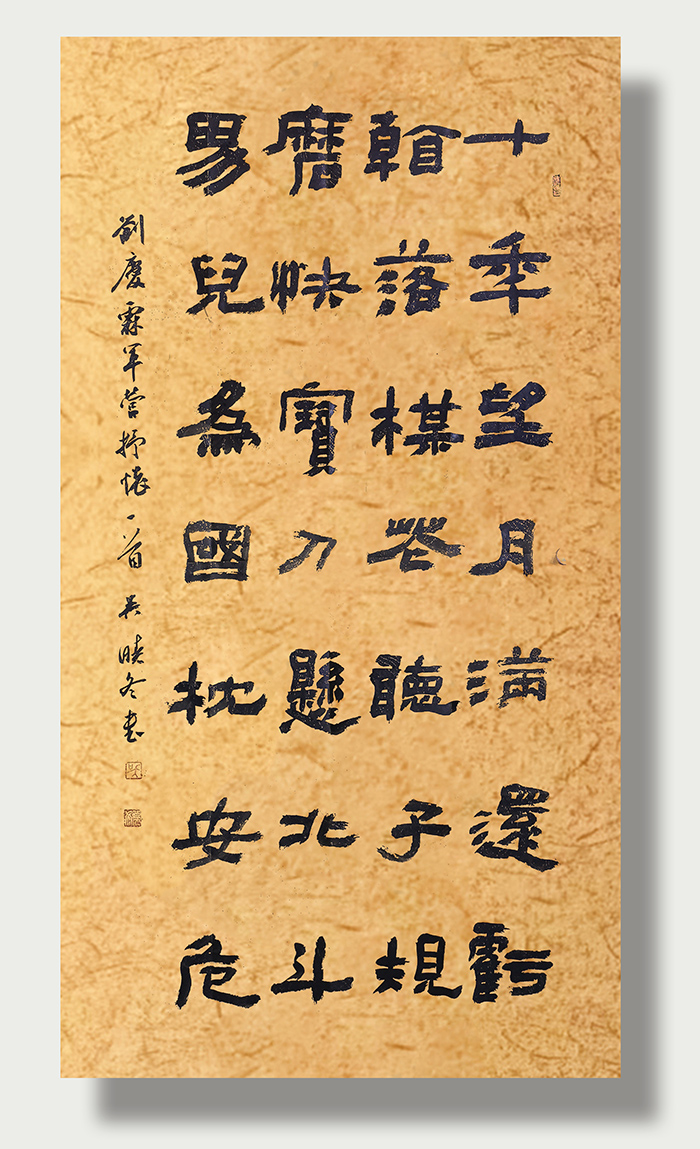 十秊望月滿還虧
看落楳花聽子規
磨快寶刀懸北斗
男兒為國枕安危
劉慶霖軍營抒懷一首 吳曉冬書